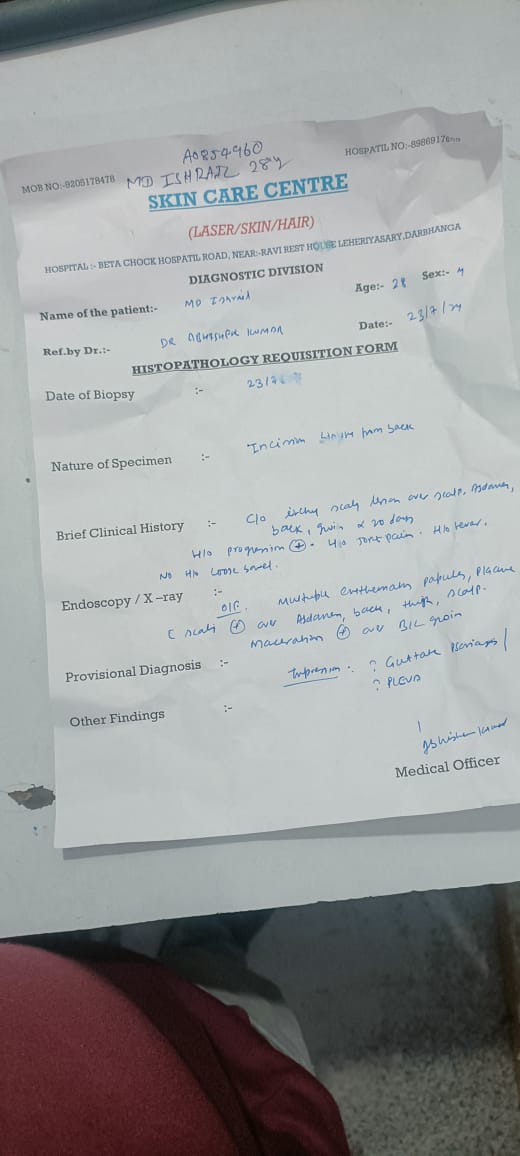 A0854960
MOB NO:-9205178478 HOSPATIL NO:-89869176
MD ISHRAIL 28y
SKIN CARE CENTRE
(LASER/SKIN/HAIR)
HOSPITAL :- BETA CHOCK HOSPATIL ROAD, NEAR:-RAVI REST HOUSE LEHERIYASARY,DARBHANGA
DIAGNOSTIC DIVISION
Name of the patient:- MD Israil Age:- 28 Sex:- M
Ref.by Dr.:- DR ABHISHEK KUMAR Date:- 23/7/24
HISTOPATHOLOGY REQUISITION FORM
Date of Biopsy :- 23/7
Nature of Specimen :- from back
Brief Clinical History :- C/o itchy scaly lesion over scalp, Abdomen,
back, groin x 20 days
H/o progression (+). H/o Joint pain. H/o fever.
No H/o Loose bowel.
Endoscopy / X –ray :- O/E. Multiple erythematous papules, plaque
c scales (+) over Abdomen, back, thigh, scalp.
Maceration (+) over B/L groin
Provisional Diagnosis :- Impression : ? Guttate Psoriasis /
? PLEVA
Other Findings :-
Abhishek Kumar
Medical Officer